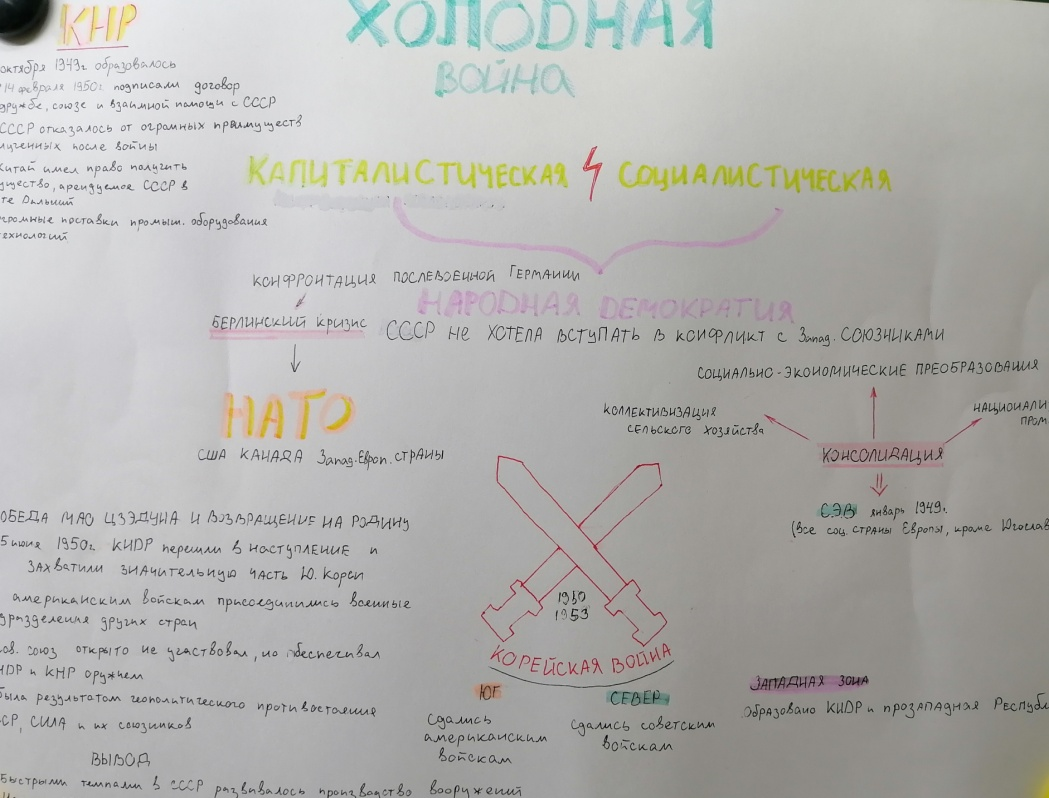 КНР
октября 1949г. образовалось
14 февраля 1950г. подписали договор
дружбе, союзе и взаимной помощи с СССР
СССР отказалось от огромных преимуществ
лученных после войны
Китай имел право получить
ущество, арендуемое СССР в
те Дальний
громные поставки промыш. оборудования
ехнологий
ХОЛОДНАЯ
ВОЙНА
КАПИТАЛИСТИЧЕСКАЯ СОЦИАЛИСТИЧЕСКАЯ
КОНФРОНТАЦИЯ ПОСЛЕВОЕННОЙ ГЕРМАНИИ
БЕРЛИНСКИЙ КРИЗИС
НАРОДНАЯ ДЕМОКРАТИЯ
СССР НЕ ХОТЕЛА ВСТУПАТЬ В КОНФЛИКТ С Запад. СОЮЗНИКАМИ
НАТО
США КАНАДА Запад. Европ. СТРАНЫ
СОЦИАЛЬНО-ЭКОНОМИЧЕСКИЕ ПРЕОБРАЗОВАНИЯ
КОЛЛЕКТИВИЗАЦИЯ
СЕЛЬСКОГО ХОЗЯЙСТВА
НАЦИОНАЛИ
ПРОМ
КОНСОЛИДАЦИЯ
СЭВ январь 1949г.
(все соц. страны Европы, кроме Югослав
ОБЕДА МАО ЦЗЭДУНА И ВОЗВРАЩЕНИЕ НА РОДИНУ
5 июня 1950г. КНДР перешли в наступление и
захватили значительную часть Ю. Кореи
американским войскам присоединились военные
дразделения других стран
ов. союз открыто не участвовал, но обеспечивал
НДР и КНР оружием
была результатом геополитического противостояния
СР, США и их союзников
ВЫВОД
Быстрыми темпами в СССР развивалось производство вооружений
1950
1953
КОРЕЙСКАЯ ВОЙНА
ЮГ
Сдались
американским
войскам
СЕВЕР
Сдались советским
войскам
ЗАПАДНАЯ ЗОНА
Образовано КНДР и прозападная Республ